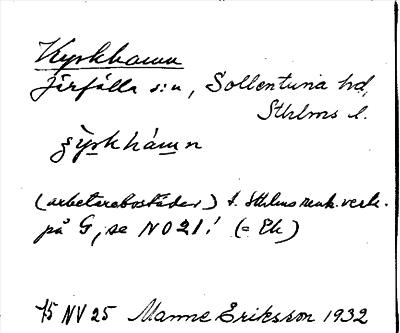 Kyrkhamn
Järfälla s:n, Sollentuna hd,
Sthlms l.
(arbetarebostäder) t. Sthlms verk.
på G, se NO21! (= Ek)
75 NV 25 Manne Eriksson 1932